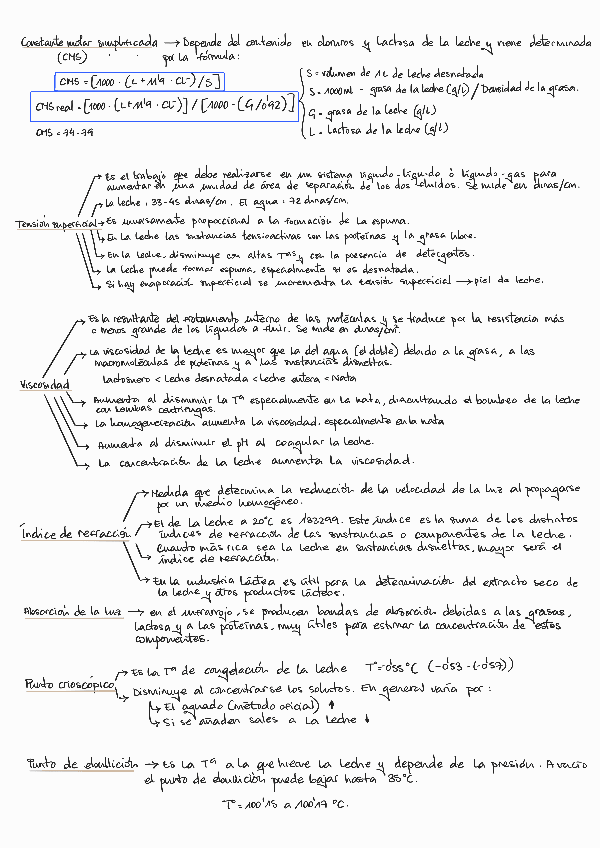 Constante molar simplificada → Depende del contenido en cloruros y lactosa de la leche y viene determinada
(CMS) por la fórmula:
CMS = [1000 · (L + 11'9 · CL⁻) / S]
CMS real = [1000 · (L + 11'9 · CL⁻)] / [1000 - (G/0'92)]
CMS = 74-79
S = volumen de 1L de leche desnatada
S = 1000ml - grasa de la leche (g/L) / Densidad de la grasa.
G = grasa de la leche (g/L)
L = Lactosa de la leche (g/L)
Tensión superficial
→ Es el trabajo que debe realizarse en un sistema líquido-líquido ó líquido-gas para
aumentar en una unidad de área de separación de los dos fluidos. Se mide en dinas/cm.
→ La leche: 33-45 dinas/cm. El agua: 72 dinas/cm.
→ Es inversamente proporcional a la formación de la espuma.
→ En la leche las sustancias tensioactivas son las proteínas y la grasa libre.
→ En la leche, disminuye con altas Tᵃs y con la presencia de detergentes.
→ La leche puede formar espuma, especialmente si es desnatada.
→ Si hay evaporación superficial se incrementa la tensión superficial → piel de leche.
Viscosidad
→ Es la resultante del rozamiento interno de las moléculas y se traduce por la resistencia más
o menos grande de los líquidos a fluir. Se mide en dinas/cm².
→ La viscosidad de la leche es mayor que la del agua (el doble) debido a la grasa, a las
macromoléculas de proteínas y a las sustancias disueltas.
Lactosuero < Leche desnatada < leche entera < Nata
→ Aumenta al disminuir la Tᵃ especialmente en la nata, dificultando el bombeo de la leche
con bombas centrífugas.
→ La homogeneización aumenta la viscosidad, especialmente en la nata
→ Aumenta al disminuir el pH al coagular la leche.
→ La concentración de la leche aumenta la viscosidad.
Índice de refracción
→ Medida que determina la reducción de la velocidad de la luz al propagarse
por un medio homogéneo.
→ El de la leche a 20°C es 1'32299. Este índice es la suma de los distintos
índices de refracción de las sustancias o componentes de la leche.
→ Cuanto más rica sea la leche en sustancias disueltas, mayor será el
índice de refracción.
→ En la industria láctea es útil para la determinación del extracto seco de
la leche y otros productos lácteos.
Absorción de la luz → en el infrarrojo, se producen bandas de absorción debidas a las grasas,
lactosa y a las proteínas, muy útiles para estimar la concentración de estos
componentes.
Punto crioscópico
→ Es la Tᵃ de congelación de la leche T°=-0'55°C (-0'53 - (-0'57))
→ Disminuye al concentrarse los solutos. En general varía por:
↳ El aguado (método oficial) ↑
↳ Si se añaden sales a la leche ↓
Punto de ebullición → Es la Tᵃ a la que hierve la leche y depende de la presión. A vacío
el punto de ebullición puede bajar hasta 35°C.
T° = 100'15 a 100'17 °C.